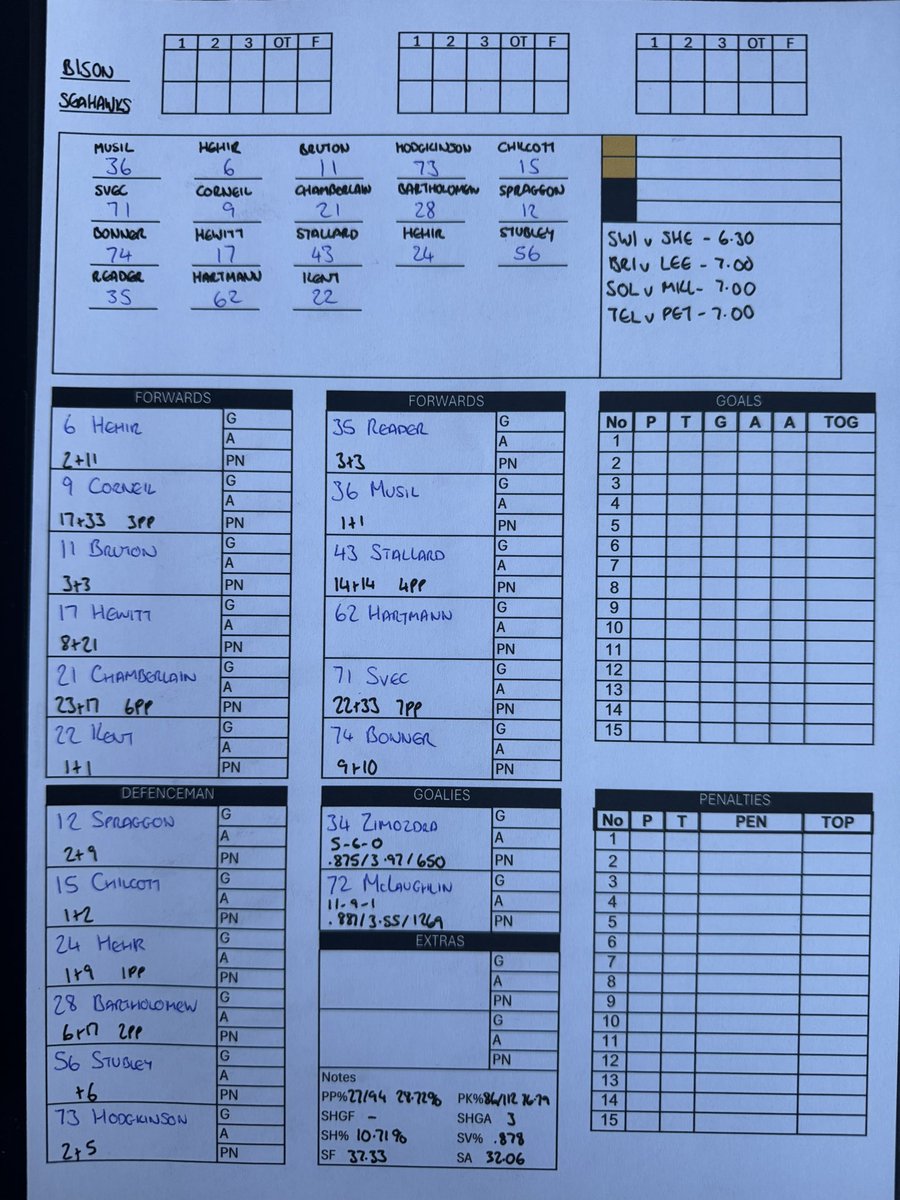 1 2 3 OT F
1 2 3 OT F
1 2 3 OT F
BISON
SEAHAWKS
MUSIL HEHIR BRUTON HODGKINSON CHILCOTT
36 6 11 73 15
SVEC CORNEIL CHAMBERLAIN BARTHOLOMEW SPRAGGON
71 9 21 28 12
BONNER HEWITT STALLARD HEHIR STUBLEY
74 17 43 24 56
READER HARTMANN KENT
35 62 22
SWI v SHE - 6.30
BRI v LEE - 7.00
SOL v MILL - 7.00
TEL v PET - 7.00
FORWARDS
6 HEHIR G
A
2+11 PN
9 CORNEIL G
A
17+33 3PP PN
11 BRUTON G
A
3+3 PN
17 HEWITT G
A
8+21 PN
21 CHAMBERLAIN G
A
23+17 6PP PN
22 KENT G
A
1+1 PN
FORWARDS
35 READER G
A
3+3 PN
36 MUSIL G
A
1+1 PN
43 STALLARD G
A
14+14 4PP PN
62 HARTMANN G
A
PN
71 SVEC G
A
22+33 7PP PN
74 BONNER G
A
9+10 PN
GOALS
No P T G A A TOG
1
2
3
4
5
6
7
8
9
10
11
12
13
14
15
DEFENCEMAN
12 SPRAGGON G
A
2+9 PN
15 CHILCOTT G
A
1+2 PN
24 HEHIR G
A
1+9 1PP PN
28 BARTHOLOMEW G
A
6+17 2PP PN
56 STUBLEY G
A
+6 PN
73 HODGKINSON G
A
2+5 PN
GOALIES
34 ZIMOZDRA G
5-6-0 A
.875/3.97/650 PN
72 MCLAUGHLIN G
11-9-1 A
.881/3.55/1269 PN
EXTRAS
G
A
PN
G
A
PN
Notes
PP% 27/94 28.72% PK% 86/112 76.79
SHGF - SHGA 3
SH% 10.71% SV% .878
SF 37.33 SA 32.06
PENALTIES
No P T PEN TOP
1
2
3
4
5
6
7
8
9
10
11
12
13
14
15